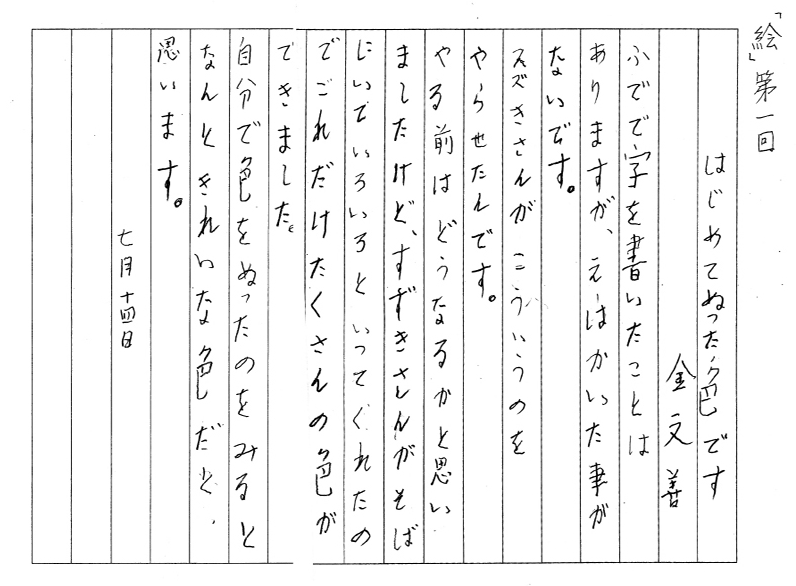 「絵」第一回
はじめてぬった色です
金文善
ふでで字を書いたことは
ありますが、えはかいた事が
ないです。
スズきさんがこういうのを
やらせたんです。
やる前はどうなるかと思い
ましたけど、すずきさんがそば
にいていろいろといってくれたの
でこれだけたくさんの色が
できました。
自分で色をぬったのをみると
なんときれいな色だと、
思います。
七月十四日